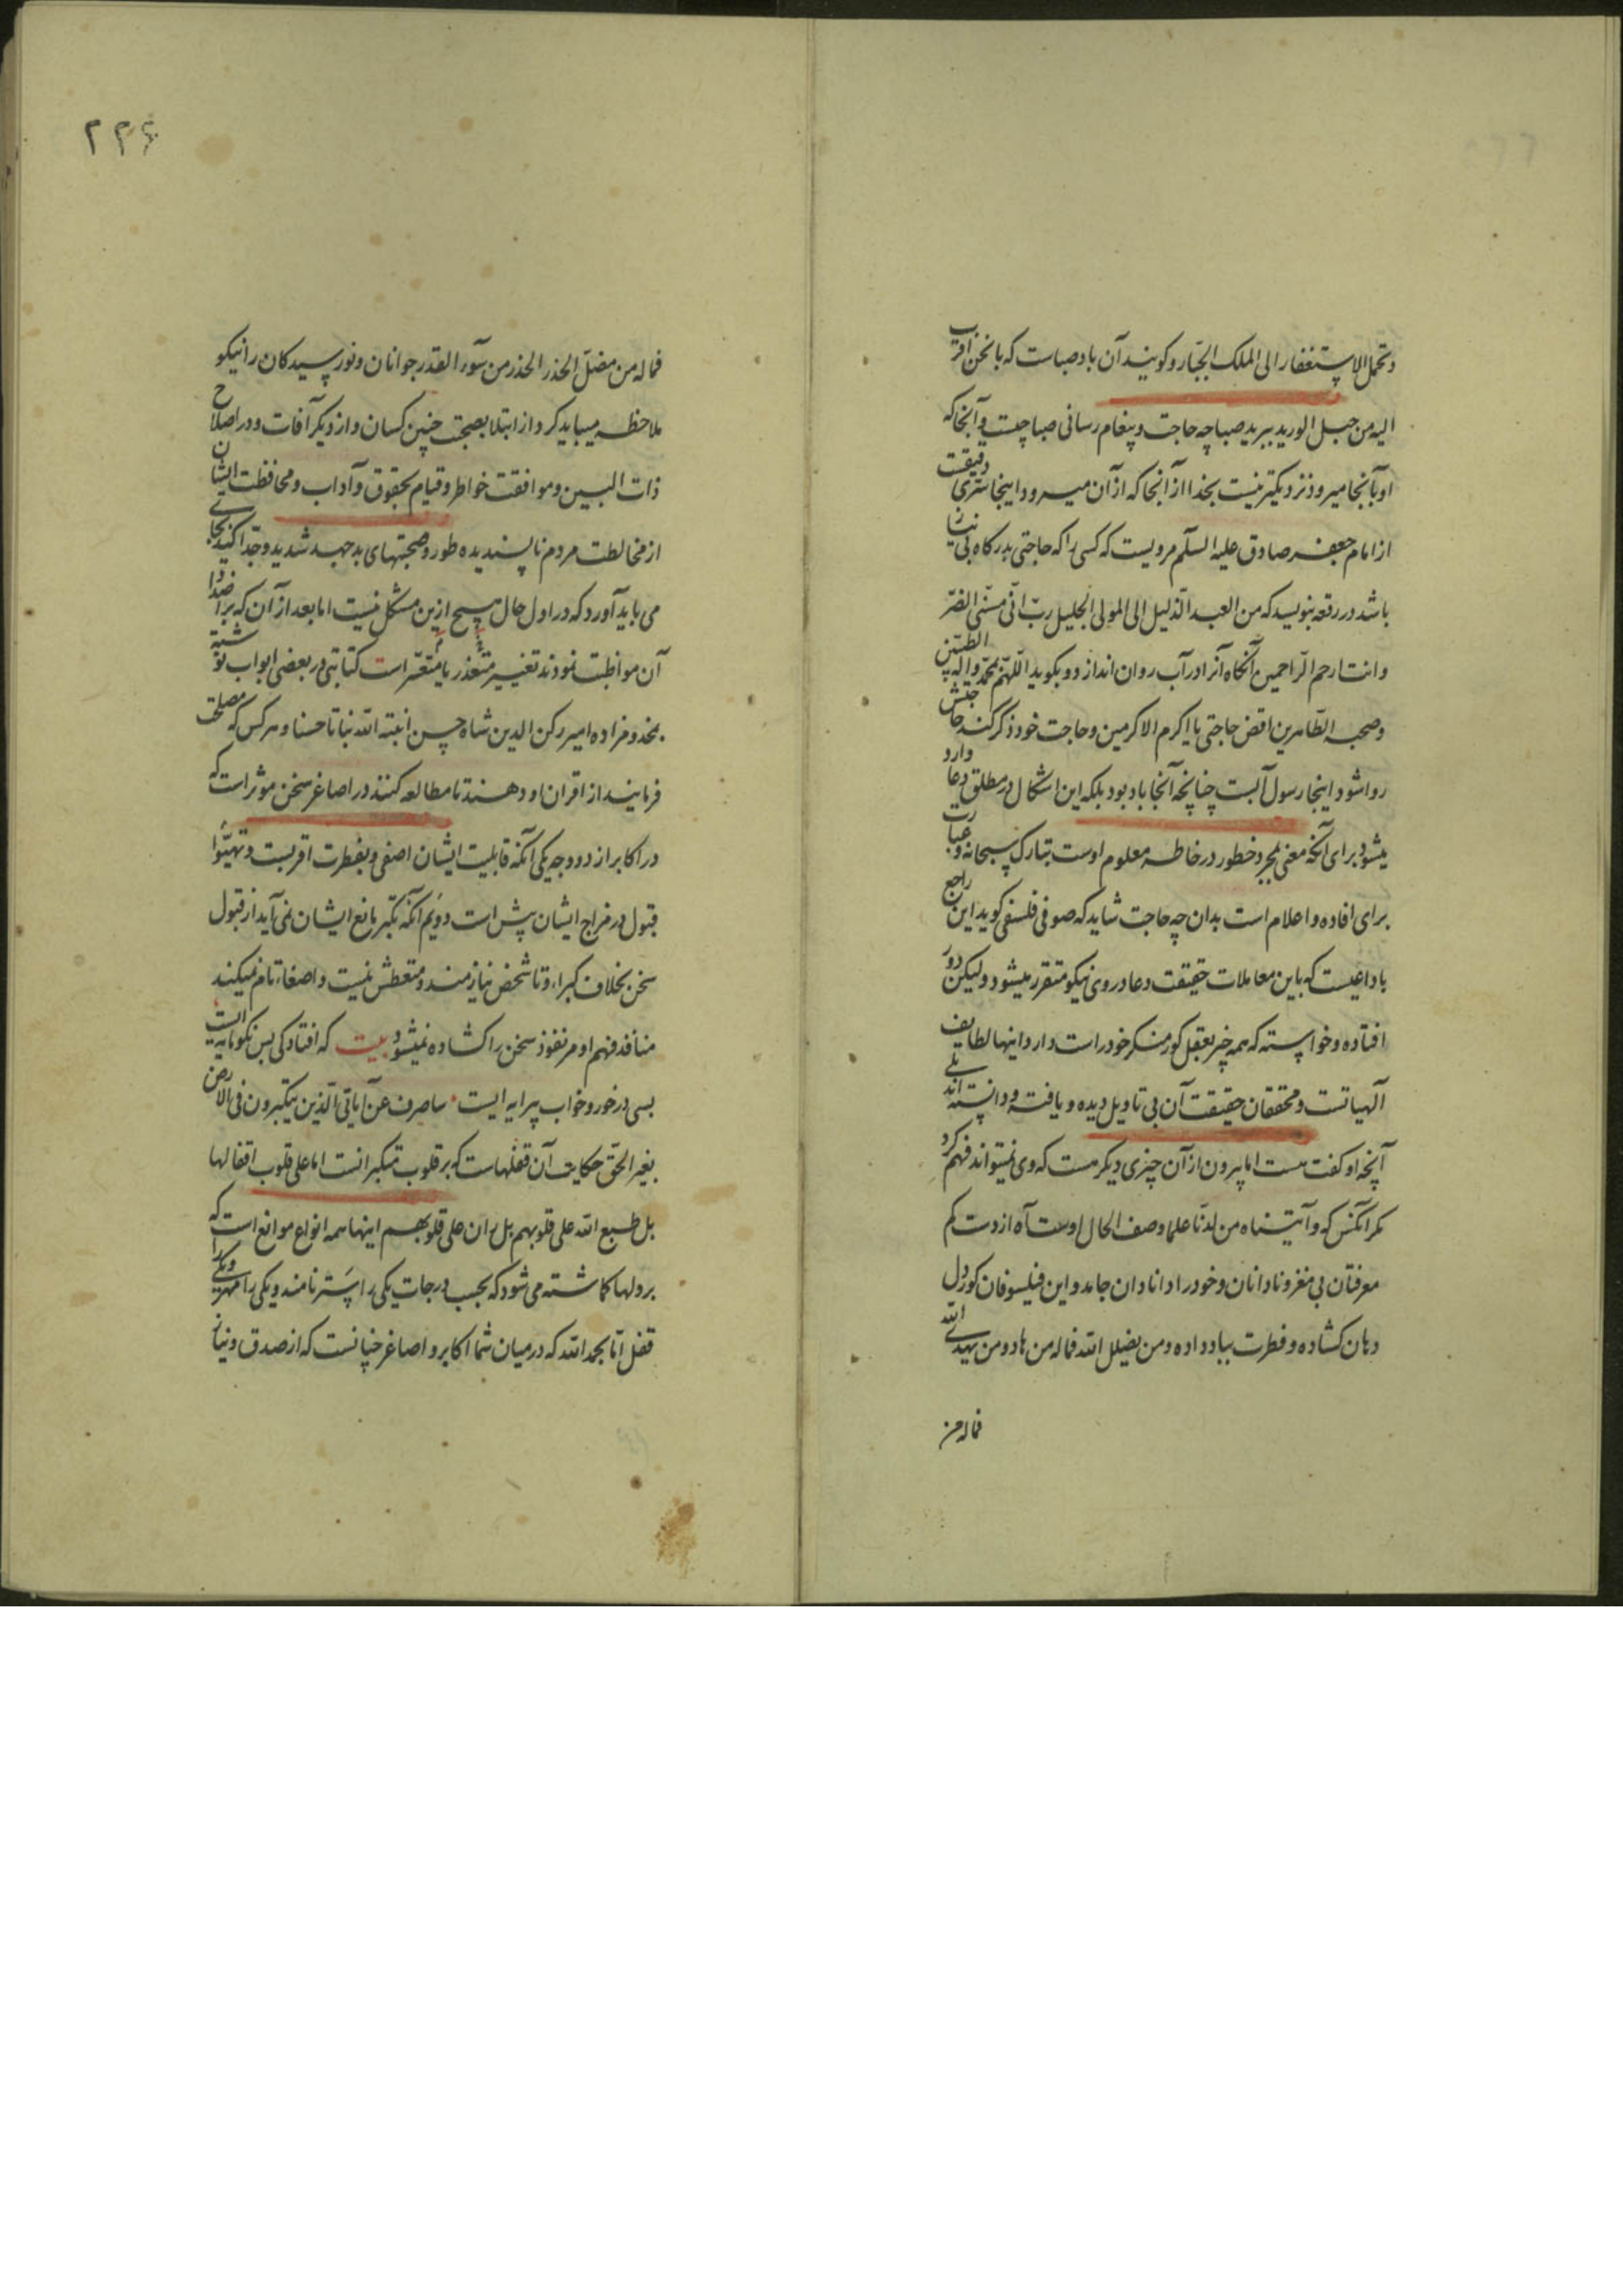 وتحمل الاستغفار الی الملک الجبار و کویند آن باد صباست که با نحن اقرب
الیه من حبل الورید ببرید صبا چه حاجت و پیغام رسانی صبا چیست و آنجا که
او بآنجا میرود نزدیکتر نیست بخدا از آنجا که از آن میرود اینجا سری دقیقست
از امام جعفر صادق علیه السلم مرویست که کسی را که حاجتی بدرکاه بی نیاز
باشد در رقعه بنویسد که من العبد الذلیل الی المولی الجلیل رب انی مسنی الضر
وانت ارحم الراحمین آنکاه آنرا در آب روان اندازد و بکوید اللهم بمحمد واله الطیبین
وصحبه الطاهرین اقض حاجتی یا اکرم الاکرمین و حاجت خود ذکر کند حاجتش
روا شود اینجا رسول آبست چنانچه آنجا باد بود بلکه این اشکال در مطلق دعا وارد
میشود برای آنکه معنی بمجرد خطور در خاطر معلوم اوست تبارک سبحانه و عبارت
برای افاده و اعلام است بدان چه حاجت شاید که صوفی فلسفی کوید این راجع
با داعیست که باین معاملات حقیقت دعا در وی نیکو متقرر میشود ولیکن دور
افتاده و خواسته که همه چیز بعقل کور منکر خود راست دارد اینها لطایف
آلهیاتست و محققان حقیقت آن بی تاویل دیده و یافته و دانسته اند بلی
آنچه او کفت هست اما بیرون از آن چیزی دیکر هست که وی نمیتواند فهم کرد
مکر آنکس که وآتیناه من لدنا علما وصف الحال اوست آه از دست کم
معرفتان بی مغز و نادانان و خود را دانا دان جامد و این فیلسوفان کور دل
دهان کشاده و فطرت بباد داده ومن یضلل الله فماله من هاد ومن یهدی الله
فماله من
۲۲۶
فماله من مضل الحذر الحذر من سوء القدر جوانان و نورسیدکان را نیکو
ملاحظه میباید کرد از ابتلا بصحبت چنین کسان و از دیکر آفات و در اصلاح
ذات البین و موافقت خواطر و قیام بحقوق و آداب و محافظت ایشان
از مخالطت مردم ناپسندیده طور و صحبتهای بد جهد شدید و جد اکید بجای
می باید آورد که در اول حال هیچ ازین مشکل نیست اما بعد از آن که بر اضداد
آن مواظبت نمودند تغییر متعذر یا متعسر است کتابتی در بعضی ابواب نوشته
بمخدوم زاده امیر رکن الدین شاه حسن انبته الله نباتا حسنا و هر کس که مصلحت
فرمایند از اقران او دهند تا مطالعه کنند در اصاغر سخن موثر است که
در اکابر از دو وجه یکی آنکه قابلیت ایشان اصفی و بفطرت اقربست و تهیوا
قبول در مزاج ایشان پیش است دویم آنکه تکبر مانع ایشان نمی آید از قبول
سخن بخلاف کبراء و تا شخص نیازمند و متعطش نیست و اصغاء تام نمیکند
منافذ فهم او مر نفوذ سخن را کشاده نمیشود بیت که افتادکی بس نکو مایه ایست
بسی در خور و خواب پیرایه ایست ساصرف عن آیاتی الذین یتکبرون فی الارض
بغیر الحق حکایت آن قفلهاست که بر قلوب متکبرانست اما علی قلوب اقفالها
بل طبع الله علی قلوبهم بل ران علی قلوبهم اینها همه انواع موانع است که
بر دلها کماشته می شود که بحسب درجات یکی را ستر نامند و یکی را مهر و دیکری را
قفل اما بحمد الله که در میان شما اکابر و اصاغر چنانست که از صدق و نیاز